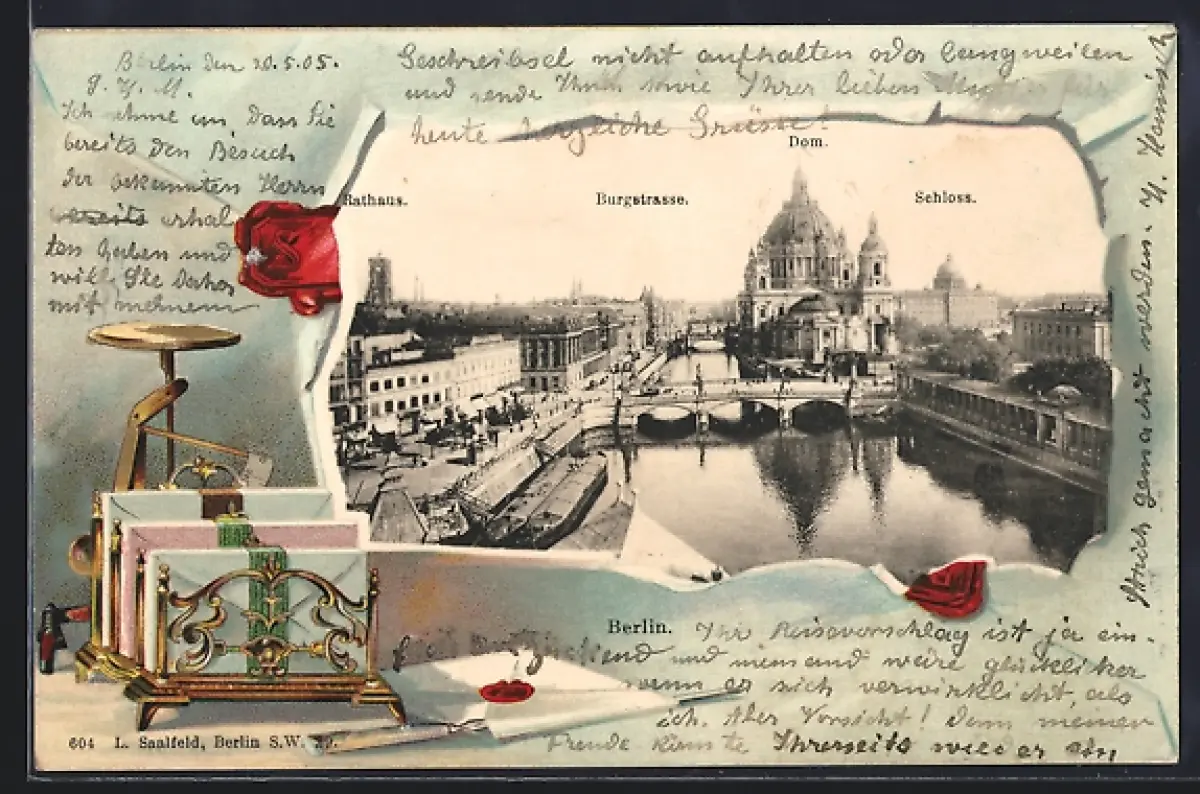 Berlin den 20.5.05.
g. H. M.
Ich nehme an, dass Sie
bereits den Besuch
der bekannten Herrn
bereits erhal
ten haben und
will Sie daher
mit meinem
Geschreibsel nicht aufhalten oder langweilen
und sende Ihnen sowie Ihrer lieben für
heute herzliche Grüsse!
Dom.
Rathaus.
Burgstrasse.
Schloss.
Berlin.
Ihr Reisevorschlag ist ja ein-
und niemand wäre glücklicher
wenn er sich verwirklicht, als
ich. Aber Vorsicht! Denn meiner
Freude könnte Ihrerseits wieder ein
Strich gemacht werden. H. Hanisch
604 L. Saalfeld, Berlin S.W. 29.